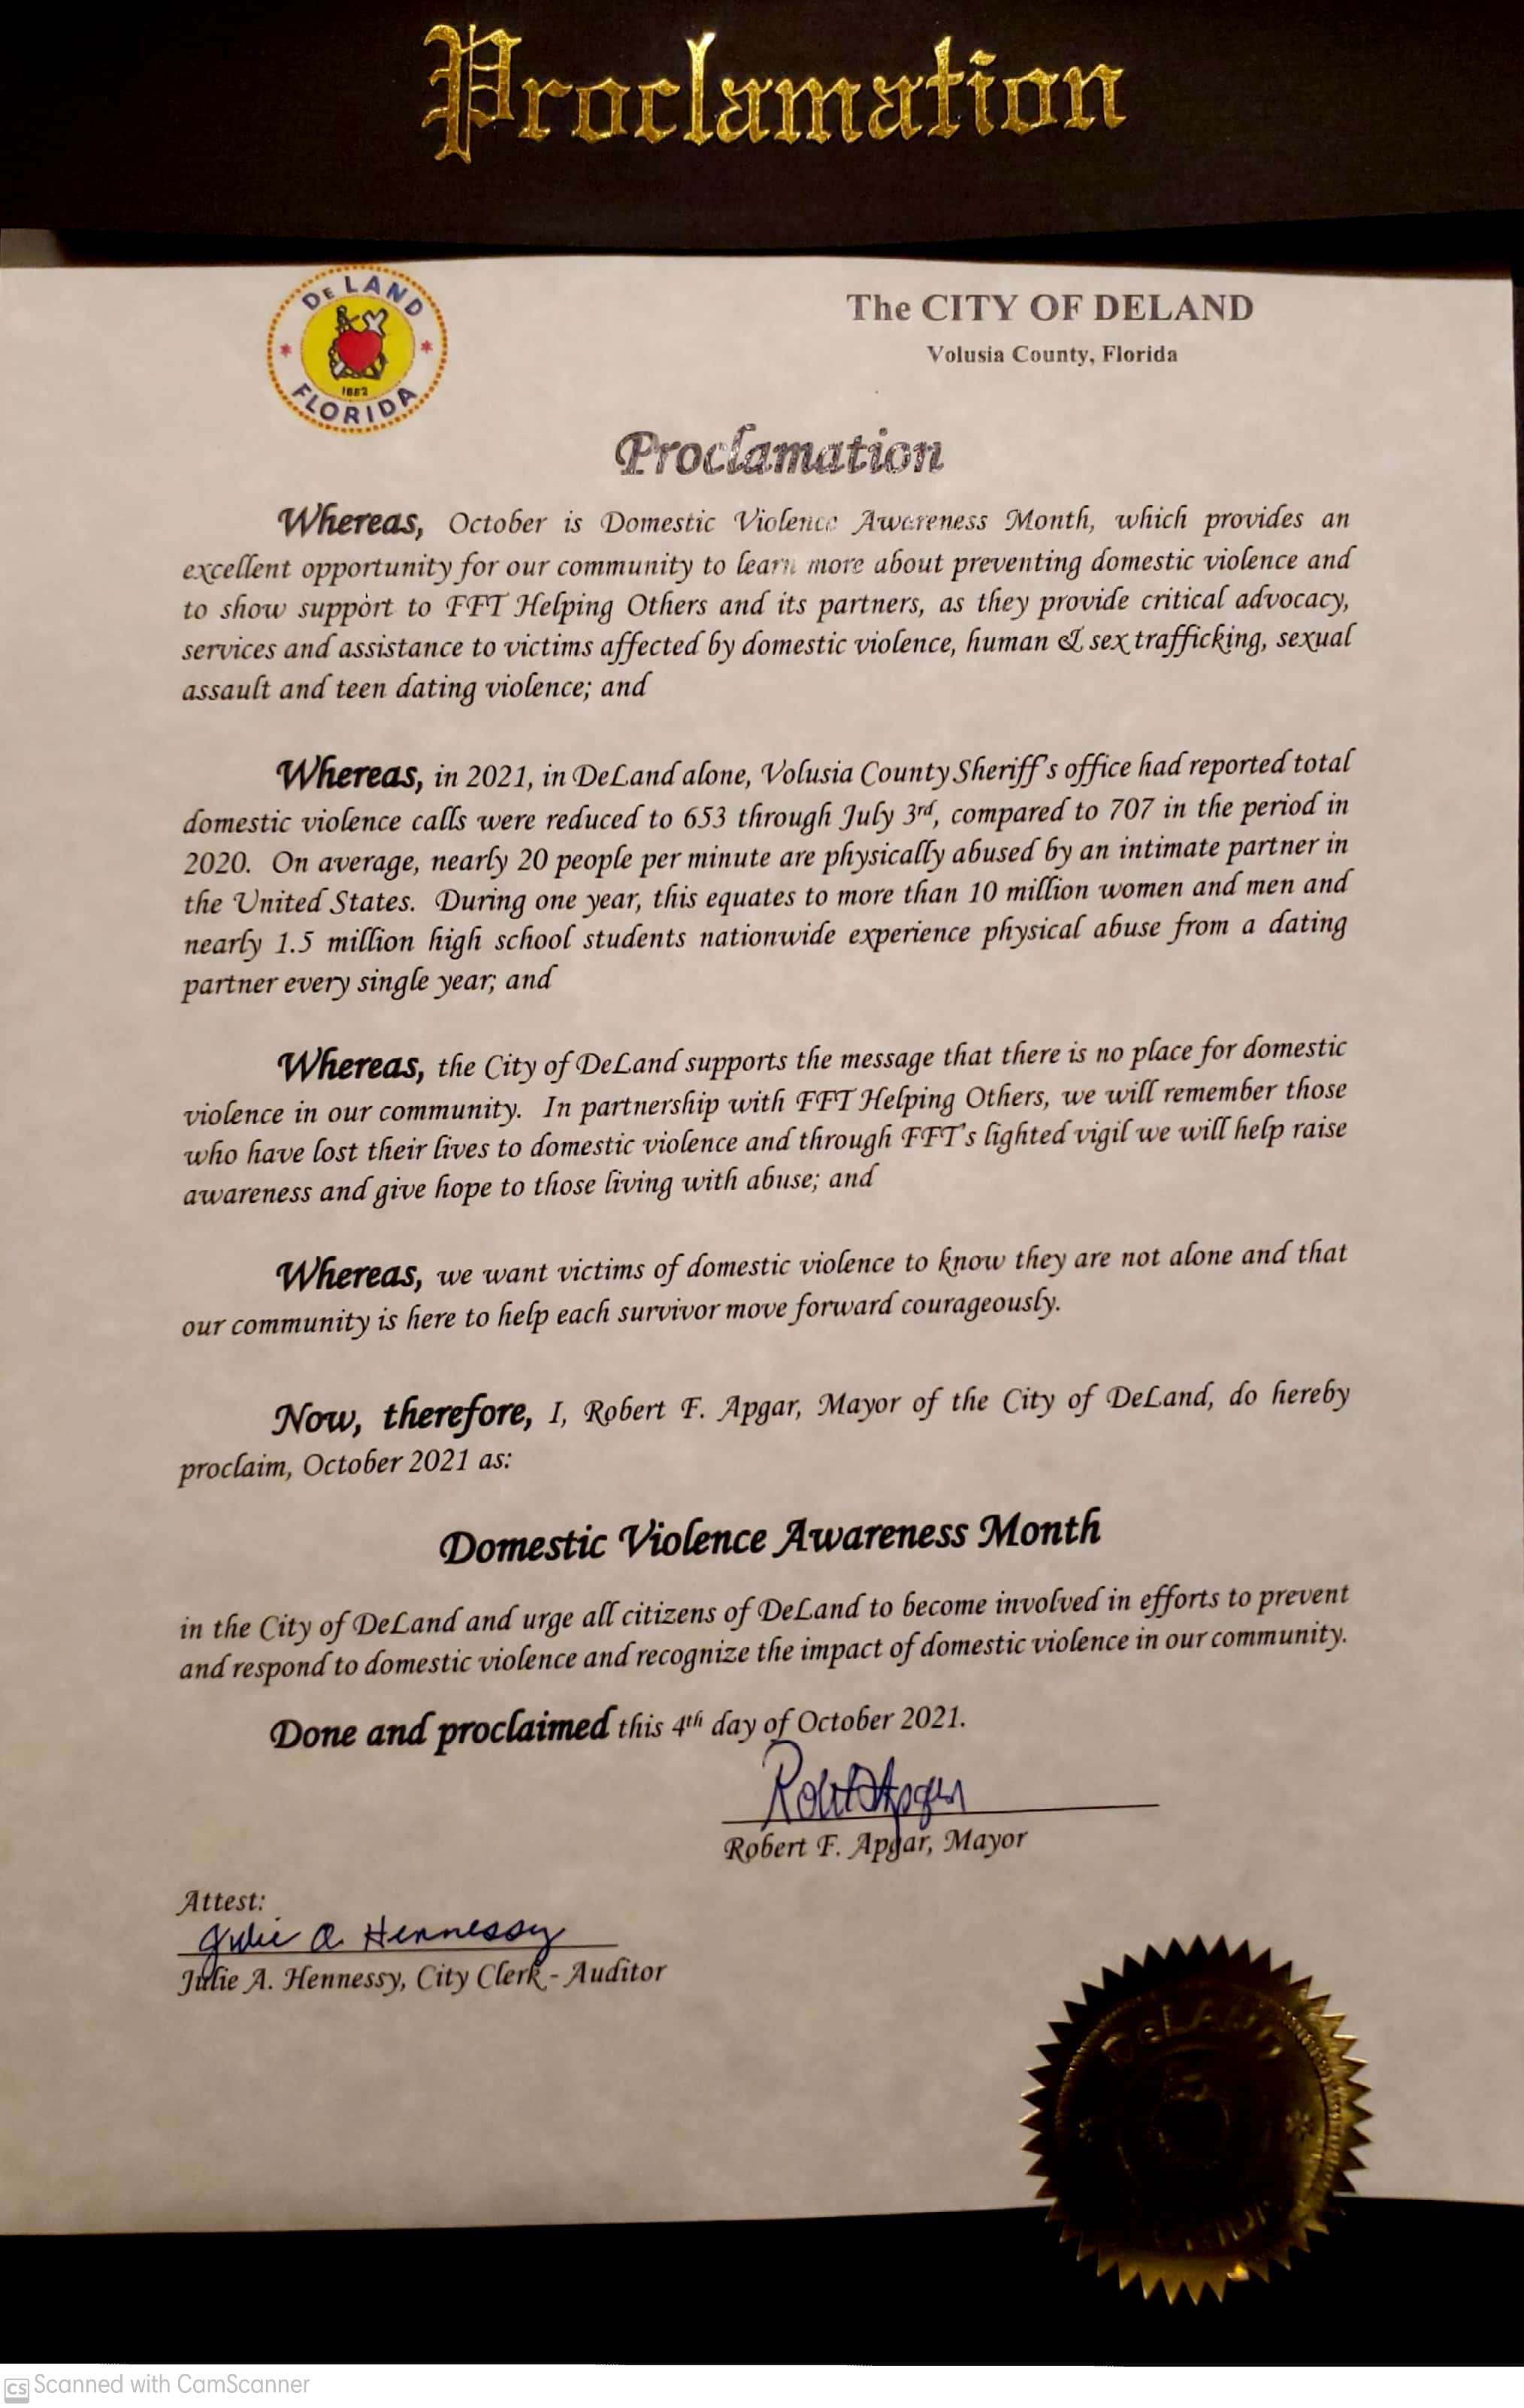 Proclamation
DELAND
1882
FLORIDA
The CITY OF DELAND
Volusia County, Florida
Proclamation
Whereas, October is Domestic Violence Awareness Month, which provides an
excellent opportunity for our community to learn more about preventing domestic violence and
to show support to FFT Helping Others and its partners, as they provide critical advocacy,
services and assistance to victims affected by domestic violence, human & sex trafficking, sexual
assault and teen dating violence; and
Whereas, in 2021, in DeLand alone, Volusia County Sheriff's office had reported total
domestic violence calls were reduced to 653 through July 3rd, compared to 707 in the period in
2020. On average, nearly 20 people per minute are physically abused by an intimate partner in
the United States. During one year, this equates to more than 10 million women and men and
nearly 1.5 million high school students nationwide experience physical abuse from a dating
partner every single year; and
Whereas, the City of DeLand supports the message that there is no place for domestic
violence in our community. In partnership with FFT Helping Others, we will remember those
who have lost their lives to domestic violence and through FFT's lighted vigil we will help raise
awareness and give hope to those living with abuse; and
Whereas, we want victims of domestic violence to know they are not alone and that
our community is here to help each survivor move forward courageously.
Now, therefore, I, Robert F. Apgar, Mayor of the City of DeLand, do hereby
proclaim, October 2021 as:
Domestic Violence Awareness Month
in the City of DeLand and urge all citizens of DeLand to become involved in efforts to prevent
and respond to domestic violence and recognize the impact of domestic violence in our community.
Done and proclaimed this 4th day of October 2021.
Robert F Apgar
Robert F. Apgar, Mayor
Attest:
Julie A. Hennessy
Julie A. Hennessy, City Clerk - Auditor
DeLAND
CS Scanned with CamScanner